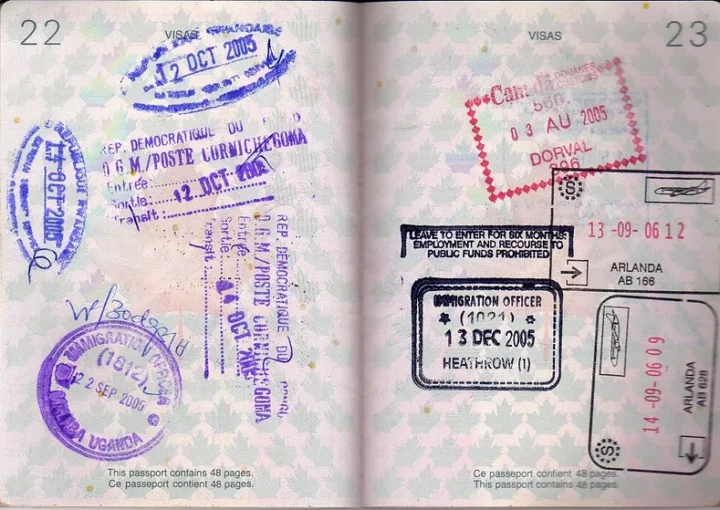 22
VISAS
12 OCT 2005
REPUBLIQUE RWANDAISE
14 OCT 2005
REP. DEMOCRATIQUE DU
D G M/POSTE CORNICHE GOMA
Entrée:
Sortie: 12 OCT 2005
Transit:
REP. DEMOCRATIQUE DU
D G M/POSTE CORNICHE GOMA
Entrée:
Sortie: 14 OCT 2005
Transit:
IMMIGRATION OFFICER
(1812)
22 SEP 2005
UGANDA
This passport contains 48 pages.
Ce passeport contient 48 pages.
VISAS
23
Canada
CUSTOMS
03 AU 2005
DORVAL
396
13-09-06 12
ARLANDA
AB 166
LEAVE TO ENTER FOR SIX MONTHS:
EMPLOYMENT AND RECOURSE TO
PUBLIC FUNDS PROHIBITED
IMMIGRATION OFFICER
(1021)
13 DEC 2005
HEATHROW (1)
14-09-06 09
ARLANDA
AB 628
Ce passeport contient 48 pages.
This passport contains 48 pages.